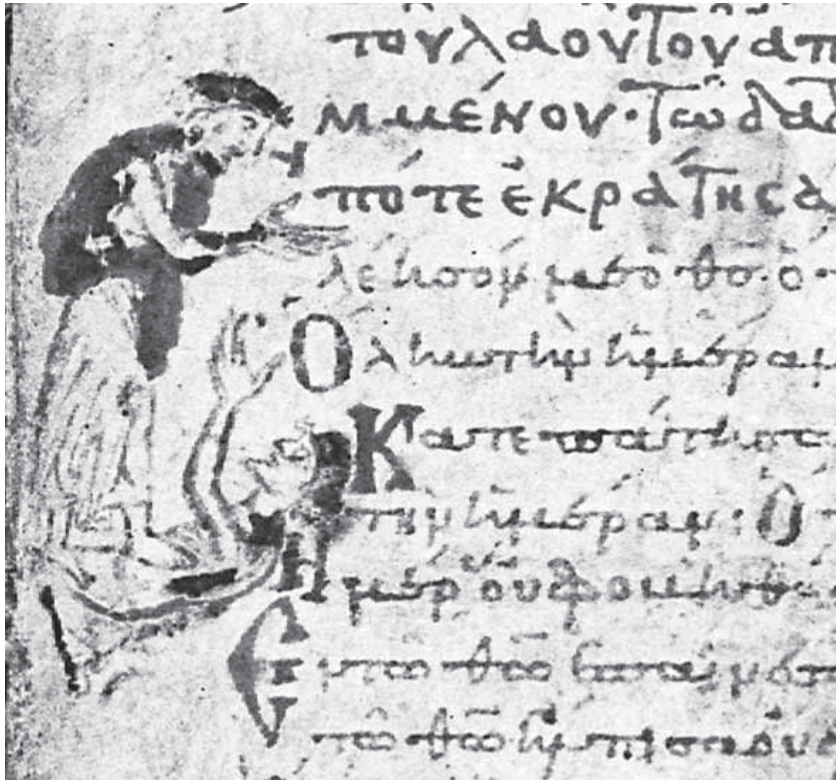 τοῦ λαοῦ τοῦ απ
μμένου· τῶ δαδ
πότε ἐκράτησα
λέησόν με ὁ θσ· ὅ
Ὅλην τὴν ἡμέραν
Κατεπάτησα
τὴν ἡμέραν· Ὅ
Ἡμέρ οὐ φοβηθή
Ἐν τῶ θῶ ἐπαιν
τῶ θῶ ἤλπισα οὐ